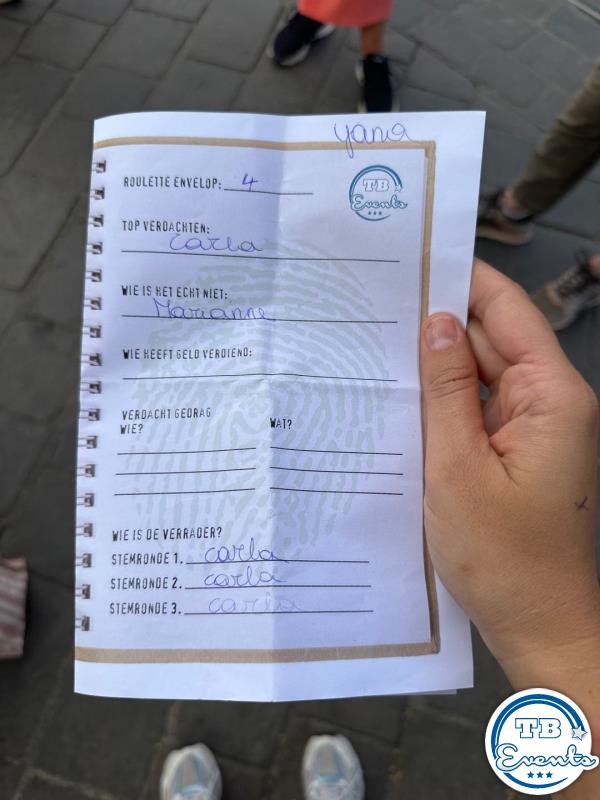 yania
TB
Events
ROULETTE ENVELOP: 4
TOP VERDACHTEN:
carla
WIE IS HET ECHT NIET:
Marianne
WIE HEEFT GELD VERDIEND:
VERDACHT GEDRAG
WIE? WAT?
WIE IS DE VERRADER?
STEMRONDE 1. carla
STEMRONDE 2. carla
STEMRONDE 3. carla
TB
Events